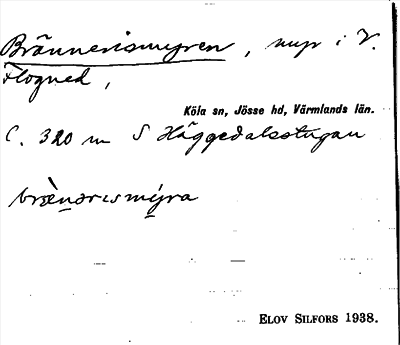 Brännerismyren, myr i V.
Flogned,
Köla sn, Jösse hd, Värmlands län.
C. 320 m S Häggedalsstugan
bræ̀nərɩsmýra
ELOV SILFORS 1938.